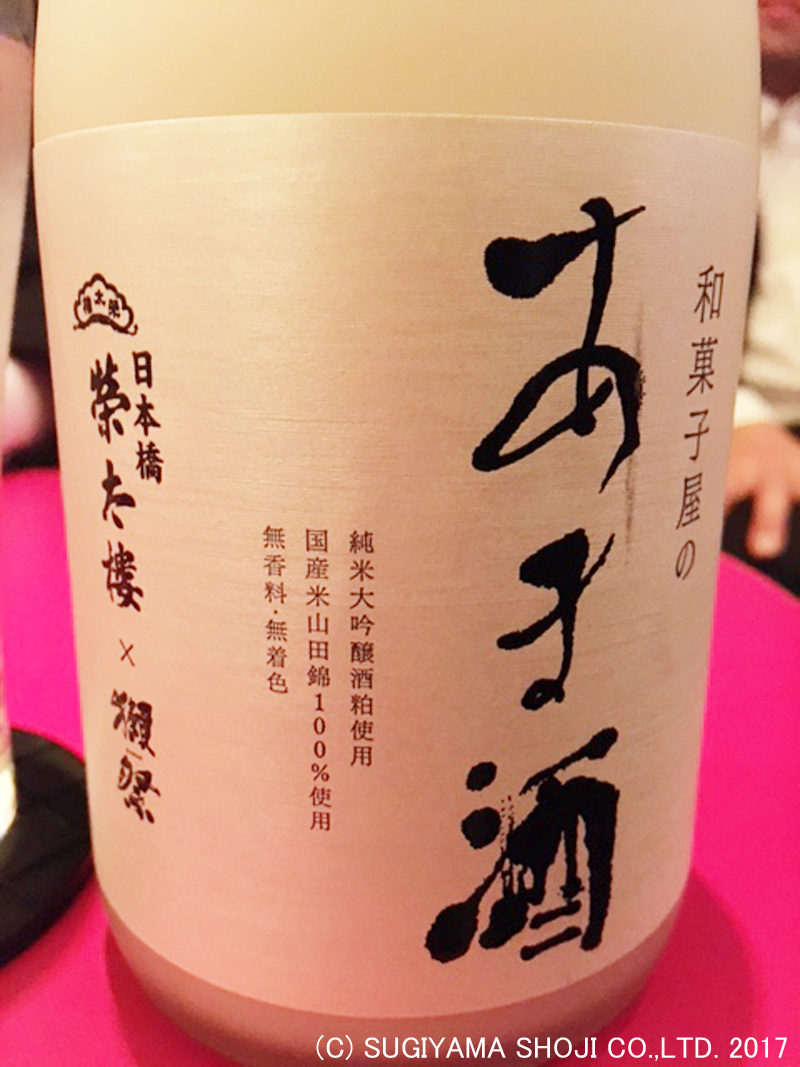 和菓子屋の
あま酒
純米大吟醸酒粕使用
国産米山田錦100%使用
無香料・無着色
樓太榮
日本橋
榮太樓×獺祭
(C) SUGIYAMA SHOJI CO.,LTD. 2017